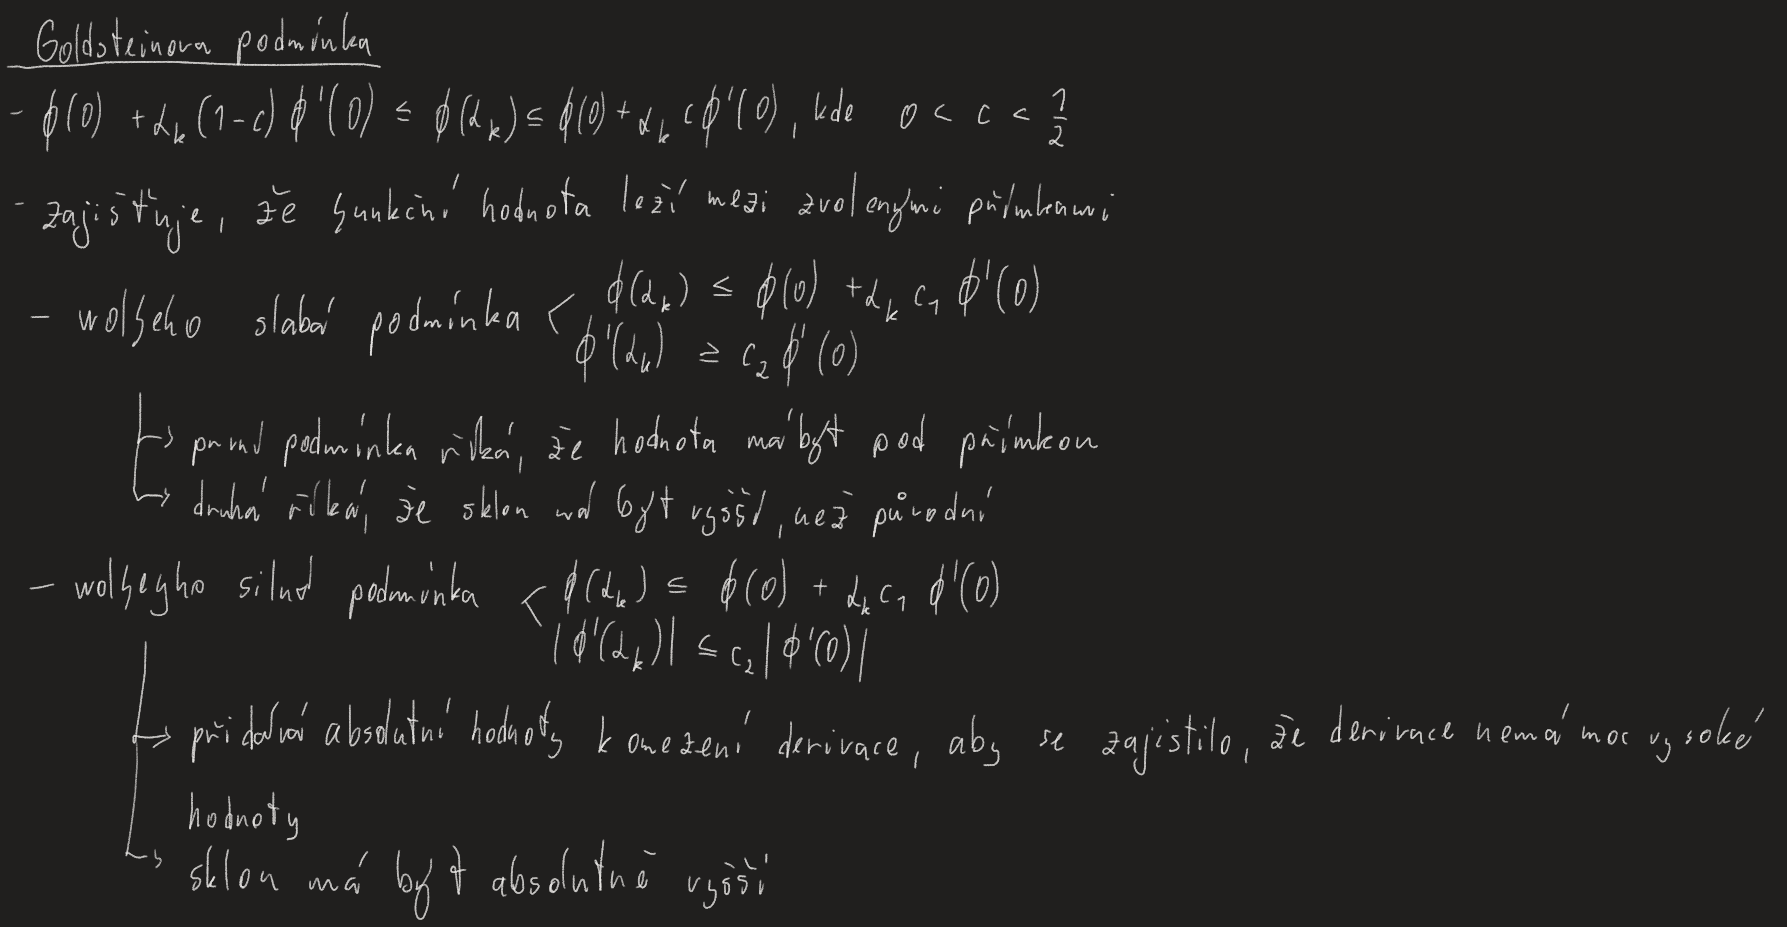 Goldsteinova podmínka
- ϕ(0) + α_k (1-c) ϕ'(0) ≤ ϕ(α_k) ≤ ϕ(0) + α_k c ϕ'(0), kde 0 < c < 1/2
- zajišťuje, že funkční hodnota leží mezi zvolenými přímkami
- wolfeho slabá podmínka < ϕ(α_k) ≤ ϕ(0) + α_k c_1 ϕ'(0)
ϕ'(α_k) ≥ c_2 ϕ'(0)
↳ první podmínka říká, že hodnota má být pod přímkou
↳ druhá říká, že sklon má být vyšší, než původní
- wolfeyho silná podmínka < ϕ(α_k) ≤ ϕ(0) + α_k c_1 ϕ'(0)
|ϕ'(α_k)| ≤ c_2 |ϕ'(0)|
→ přidává absolutní hodnoty k omezení derivace, aby se zajistilo, že derivace nemá moc vysoké
hodnoty
↳ sklon má být absolutně vyšší